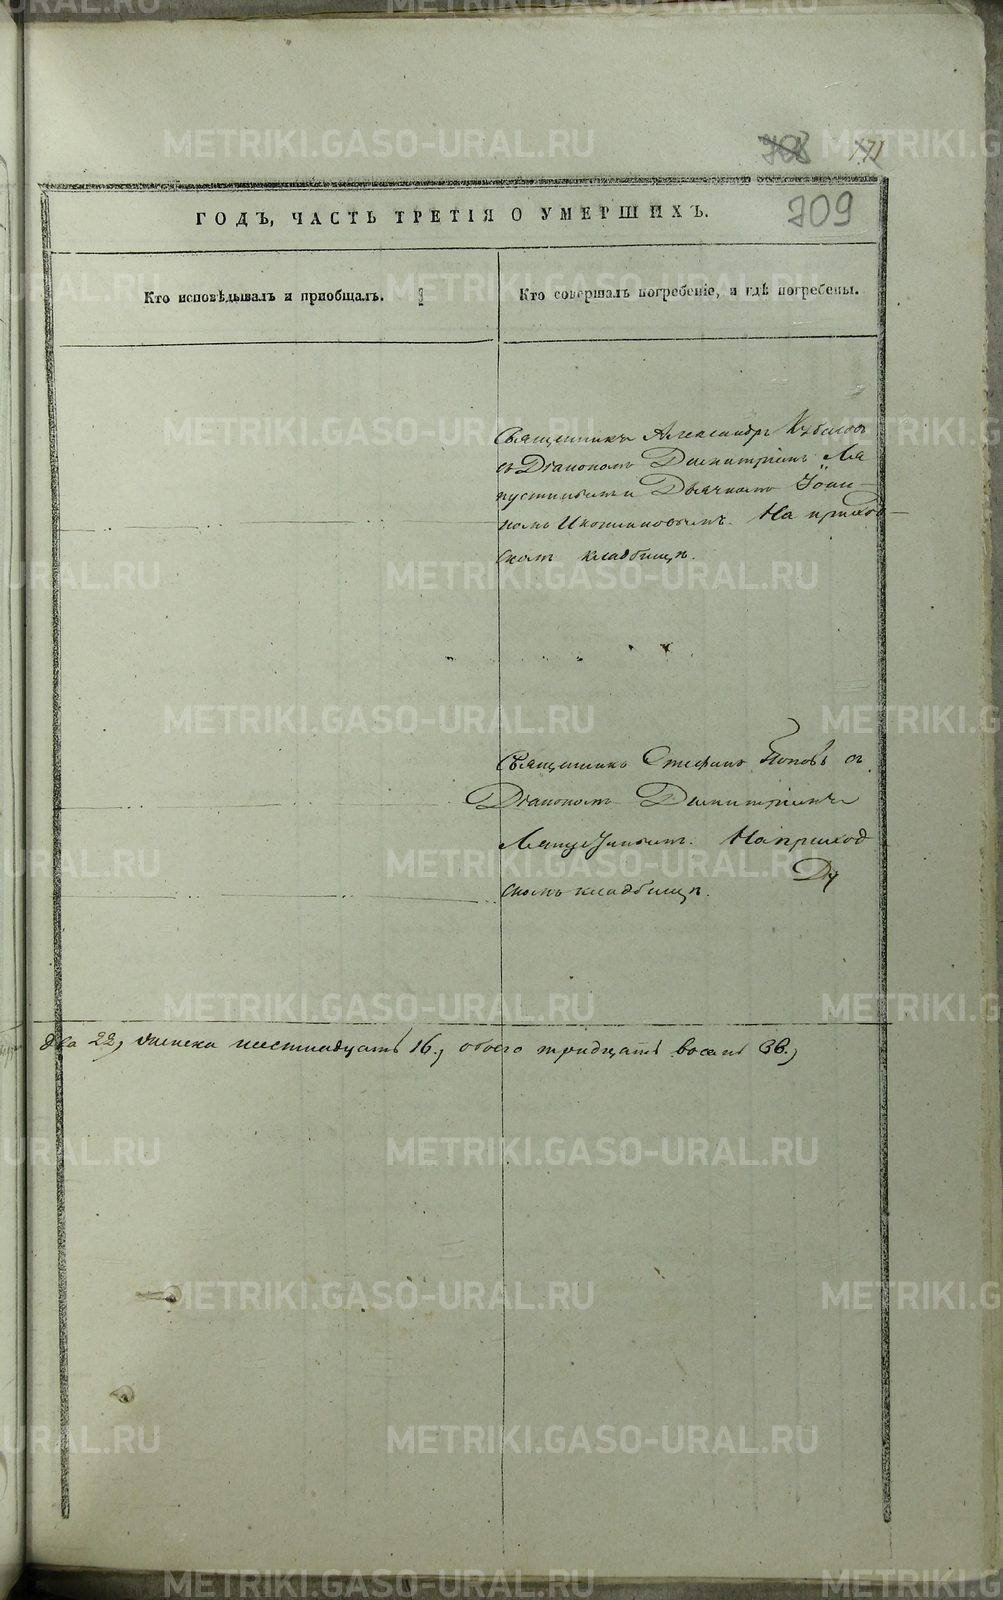 708 171
709
ГОДЪ, ЧАСТЬ ТРЕТІЯ О УМЕРШИХЪ.
Кто исповѣдывалъ и пріобщалъ.
Кто совершалъ погребеніе, и гдѣ погребены.
Священникъ Александръ
съ Діакономъ Димитріемъ Ля
пустинымъ и Дьячкомъ Іоан-
номъ На приход-
скомъ кладбищѣ.
Священникъ Стефанъ Поповъ съ
Діакономъ Димитріемъ
Ляпустинымъ. На приход
скомъ кладбищѣ.
два 22, женска шестнадцать 16., обоего тридцать восемь 38.,
METRIKI.GASO-URAL.RU